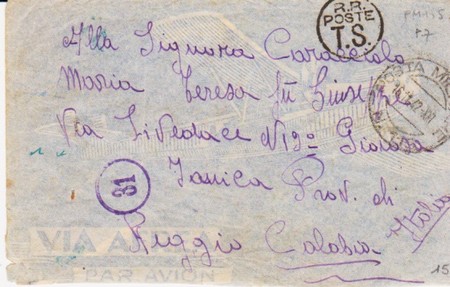 R.R.
POSTE
T.S.
PM 155
Alla Signora Caracciolo
POSTA MILIT
Maria Teresa fu Giuseppe
Via N 19= Gioiosa
31
Janica Prov. di
Reggio Calabria
Italia
VIA AEREA
PAR AVION
15